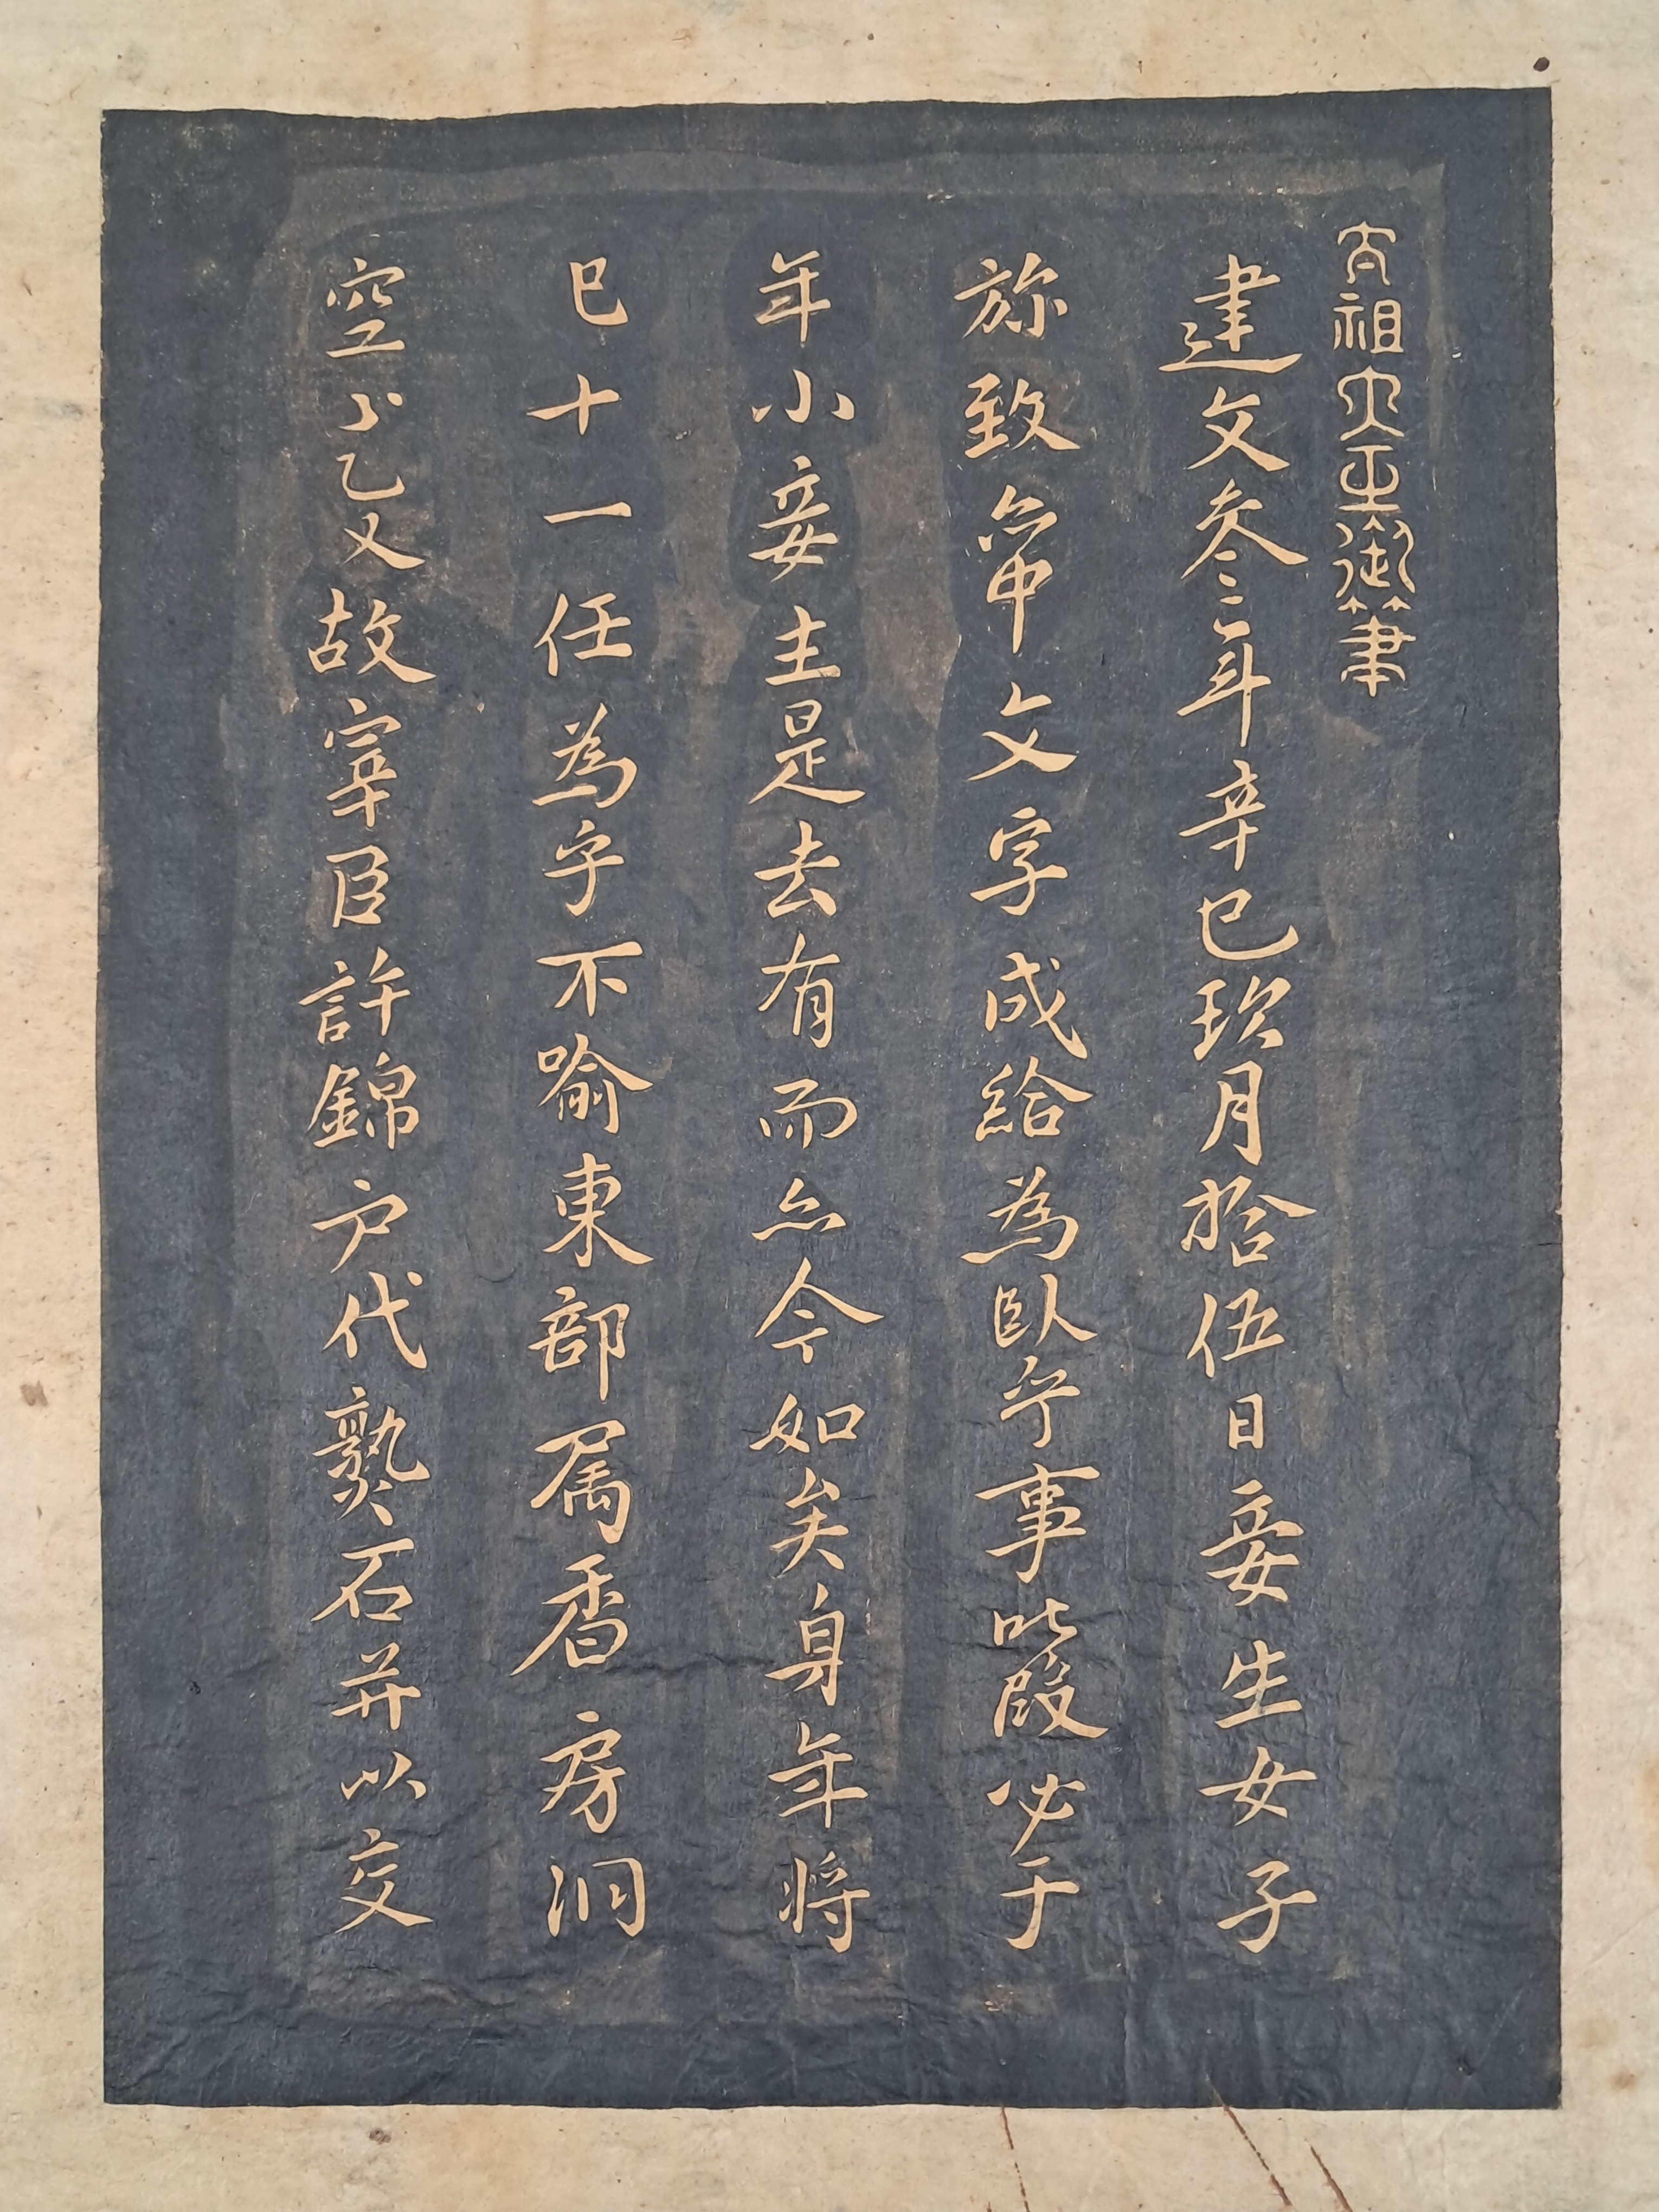 太祖大王御筆
建文叁年辛巳玖月拾伍日妾生女子
旀致亦中文字成給為臥乎事叱段必于
年小妾主是去有而亦今如矣身年將
已十一任為乎不喻東部属香房洞
空乙又故宰臣許錦戶代熟石并以交